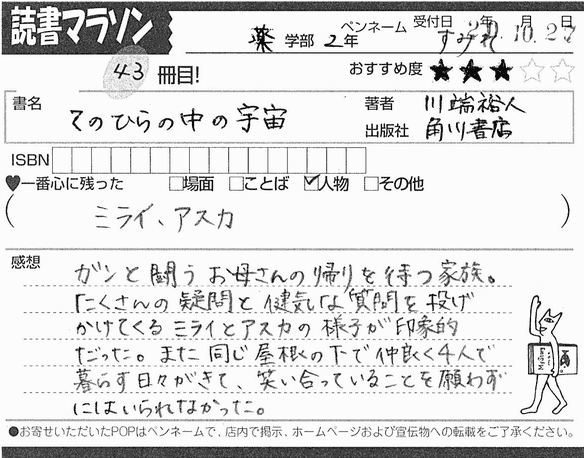 読書マラソン
薬 学部 2年 ペンネーム すみれ 受付日 年 月 日
10.27
43 冊目!
おすすめ度 ★★★☆☆
書名 てのひらの中の宇宙
著者 川端裕人
出版社 角川書店
ISBN
♥一番心に残った □場面 □ことば ☑人物 □その他
(ミライ、アスカ)
感想
ガンと闘うお母さんの帰りを待つ家族。
たくさんの疑問と健気な質問を投げ
かけてくるミライとアスカの様子が印象的
だった。また同じ屋根の下で仲良く4人で
暮らす日々がきて、笑い合っていることを願わず
にはいられなかった。
●お寄せいただいたPOPはペンネームで、店内で掲示、ホームページおよび宣伝物への転載をご了承ください。